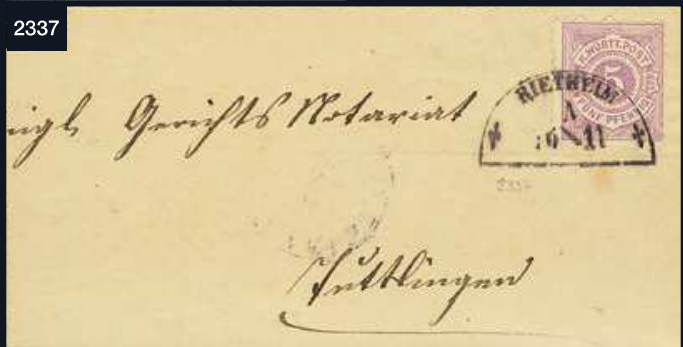 2337
K. WÜRTT. POST
5
FÜNF PFENNIG
RIETHEIM
2337
Gerichts Notariat
Tuttlingen